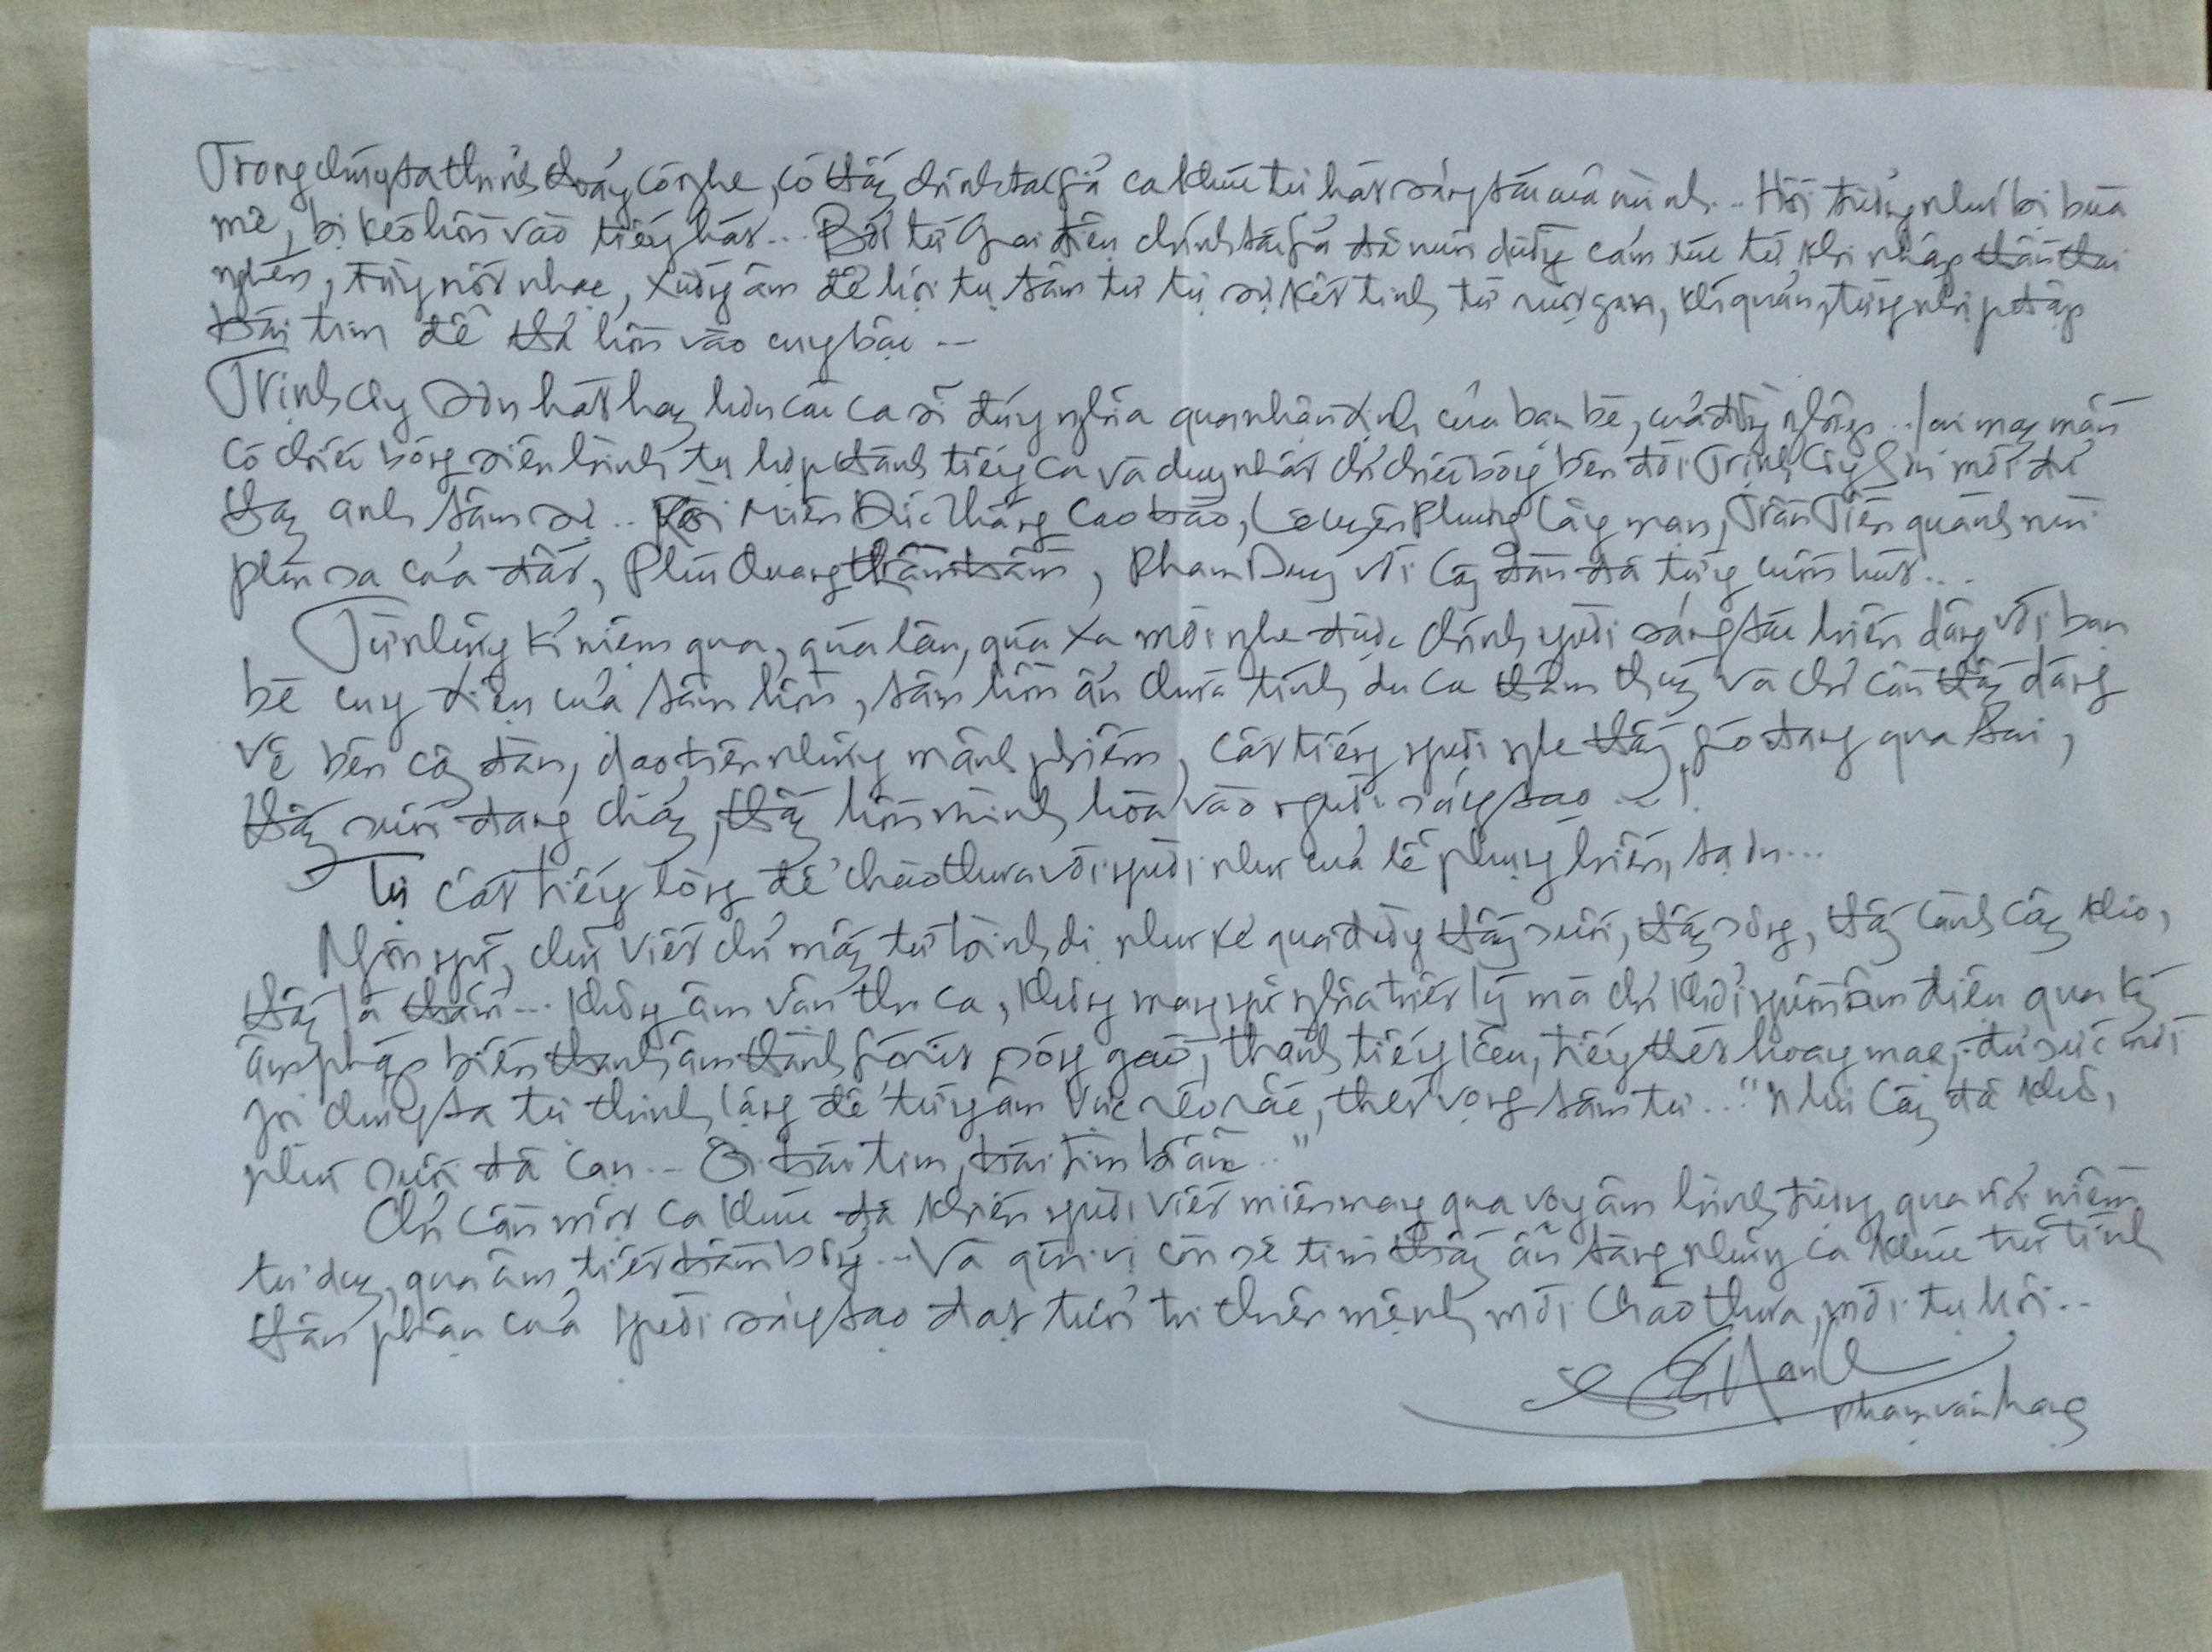 Trong chúng ta thỉnh thoảng có nghe, có thấy chính tác giả ca khúc tự hát sáng tác của mình... Hội trường như bị bùa
mê, bị kéo hồn vào tiếng hát... Bởi từ giai điệu chính tác giả đã nuôi dưỡng cảm xúc từ khi nhập thần thai
nghén, từng nốt nhạc, xướng âm để hội tụ tâm tư tự sự kết tinh từ ruột gan, khí quản, từng nhịp đập
trái tim để thả hồn vào cung bậc...
Trịnh Công Sơn hát hay hơn các ca sĩ đúng nghĩa qua nhận định của bạn bè, của đồng nghiệp... lại may mắn
có chiếc bóng siêu hình tụ hợp thành tiếng ca và duy nhất chỉ chiếc bóng bên đời Trịnh Công Sơn mới đủ
thay anh tâm sự... Rồi Miên Đức Thắng cao trào, Lê Uyên Phương lãng mạn, Trần Tiến quánh núi
phù sa của đất, Phú Quang thâm trầm, Phạm Duy với cây đàn đã từng cuốn hút...
Từ những kỉ niệm qua, quá lâu, quá xa mới nghe được chính người sáng tác hiến dâng với bạn
bè cung điệu của tâm hồn, tâm hồn ẩn chứa tính du ca thâm thúy và chỉ cần thấy dáng
vẻ bên cây đàn, dạo trên những mảnh phiếm, cất tiếng người nghe thấy gió đang qua tai,
thấy suối đang chảy, thấy hồn mình hòa vào người sáng tạo...!
Tự cất tiếng lòng để chào thưa với người như của lễ phụng hiến, tạ ơn...
Ngôn ngữ, chữ viết chỉ mấy từ bình dị như kẻ qua đường thấy suối, thấy sông, thấy cành cây khô,
thấy lá thắm... không âm vần thơ ca, không mang ngữ nghĩa triết lý mà chỉ khơi nguồn âm điệu qua ký
âm pháp biến thanh âm thành gió rít sóng gào, thành tiếng kêu, tiếng thét hoang mạc, đủ sức mời
gọi chúng ta từ thinh lặng để từng âm vực réo rắc, thét vọng tâm tư... "Như cây đã khô,
như suối đã cạn... Ôi trái tim, trái tim trần..."
Chỉ cần một ca khúc đã khiến người viết miên mang qua vòng âm hình tượng, qua nỗi niềm
tư duy, qua âm tiết trầm bổng... Và quí vị còn sẽ tìm thấy ẩn tàng những ca khúc trữ tình
thân phận của người sáng tạo đạt tuổi tri thiên mệnh mời chào thưa, mời tụ hội...
phạm văn hạng